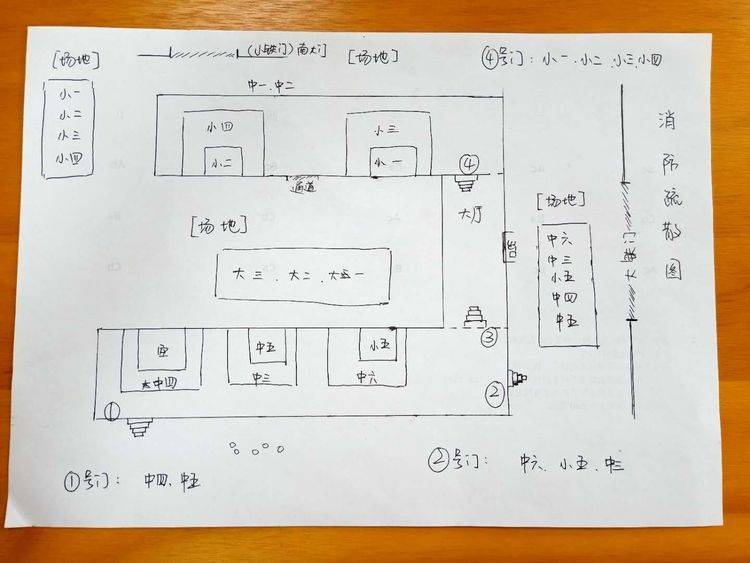 [场地]
(小铁门)南大门
[场地]
④号门：小一、小二、小三、小四
小一
小二
小三
小四
中一、中二
小四
小二
小三
小一
④
通道
大厅
[场地]
大三、大二、大五一
[场地]
中六
中三
小五
中四
中五
大铁门
消防疏散图
中五
小五
大中四
中三
中六
③
②
①
①号门：中四、中五
②号门：中六、小五、中三